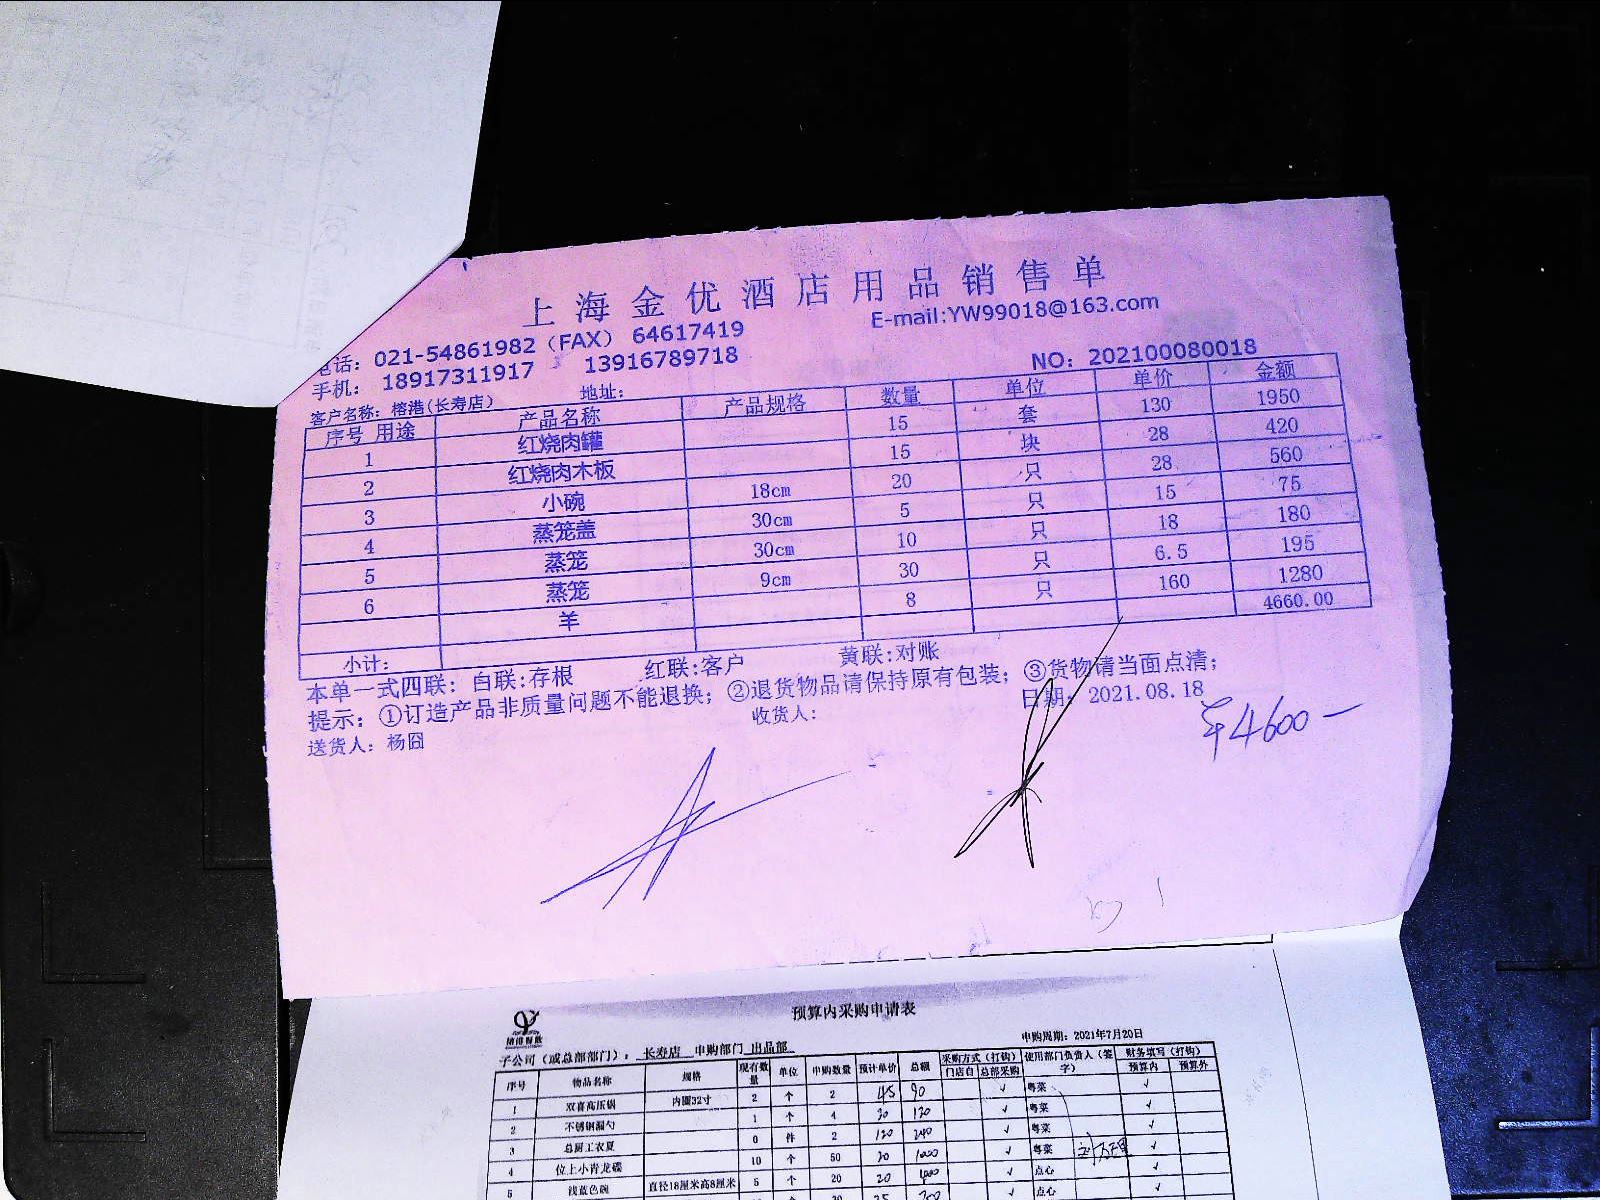 上海金优酒店用品销售单
电话：021-54861982（FAX） 64617419 E-mail:YW99018@163.com
手机： 18917311917 13916789718
客户名称：榕港(长寿店) 地址： NO：202100080018
序号 用途 产品名称 产品规格 数量 单位 单价 金额
1 红烧肉罐 15 套 130 1950
2 红烧肉木板 15 块 28 420
3 小碗 18cm 20 只 28 560
4 蒸笼盖 30cm 5 只 15 75
5 蒸笼 30cm 10 只 18 180
6 蒸笼 9cm 30 只 6.5 195
羊 8 只 160 1280
小计： 4660.00
本单一式四联：白联:存根 红联:客户 黄联:对账
提示：①订造产品非质量问题不能退换；②退货物品请保持原有包装；③货物请当面点清；
送货人：杨囧 收货人： 日期：2021.08.18
¥4600一
预算内采购申请表
申购周期：2021年7月20日
子公司（或总部部门）：长寿店 申购部门 出品部
序号 物品名称 规格 现有数量 单位 申购数量 预计单价 总额 采购方式（打钩） 使用部门负责人（签字） 财务填写（打钩）
门店自 总部采购 预算内 预算外
1 双喜高压锅 内圈32寸 2 个 2 45 90 √ 粤菜 √
2 不锈钢漏勺 1 个 4 30 120 √ 粤菜 √
3 总厨工衣夏 0 件 2 120 240 √ 粤菜 √
4 位上小青龙碟 10 个 50 20 1000 √ 点心 √
5 浅蓝色碗 直径18厘米高8厘米 5 个 20 20 √ 点心 √